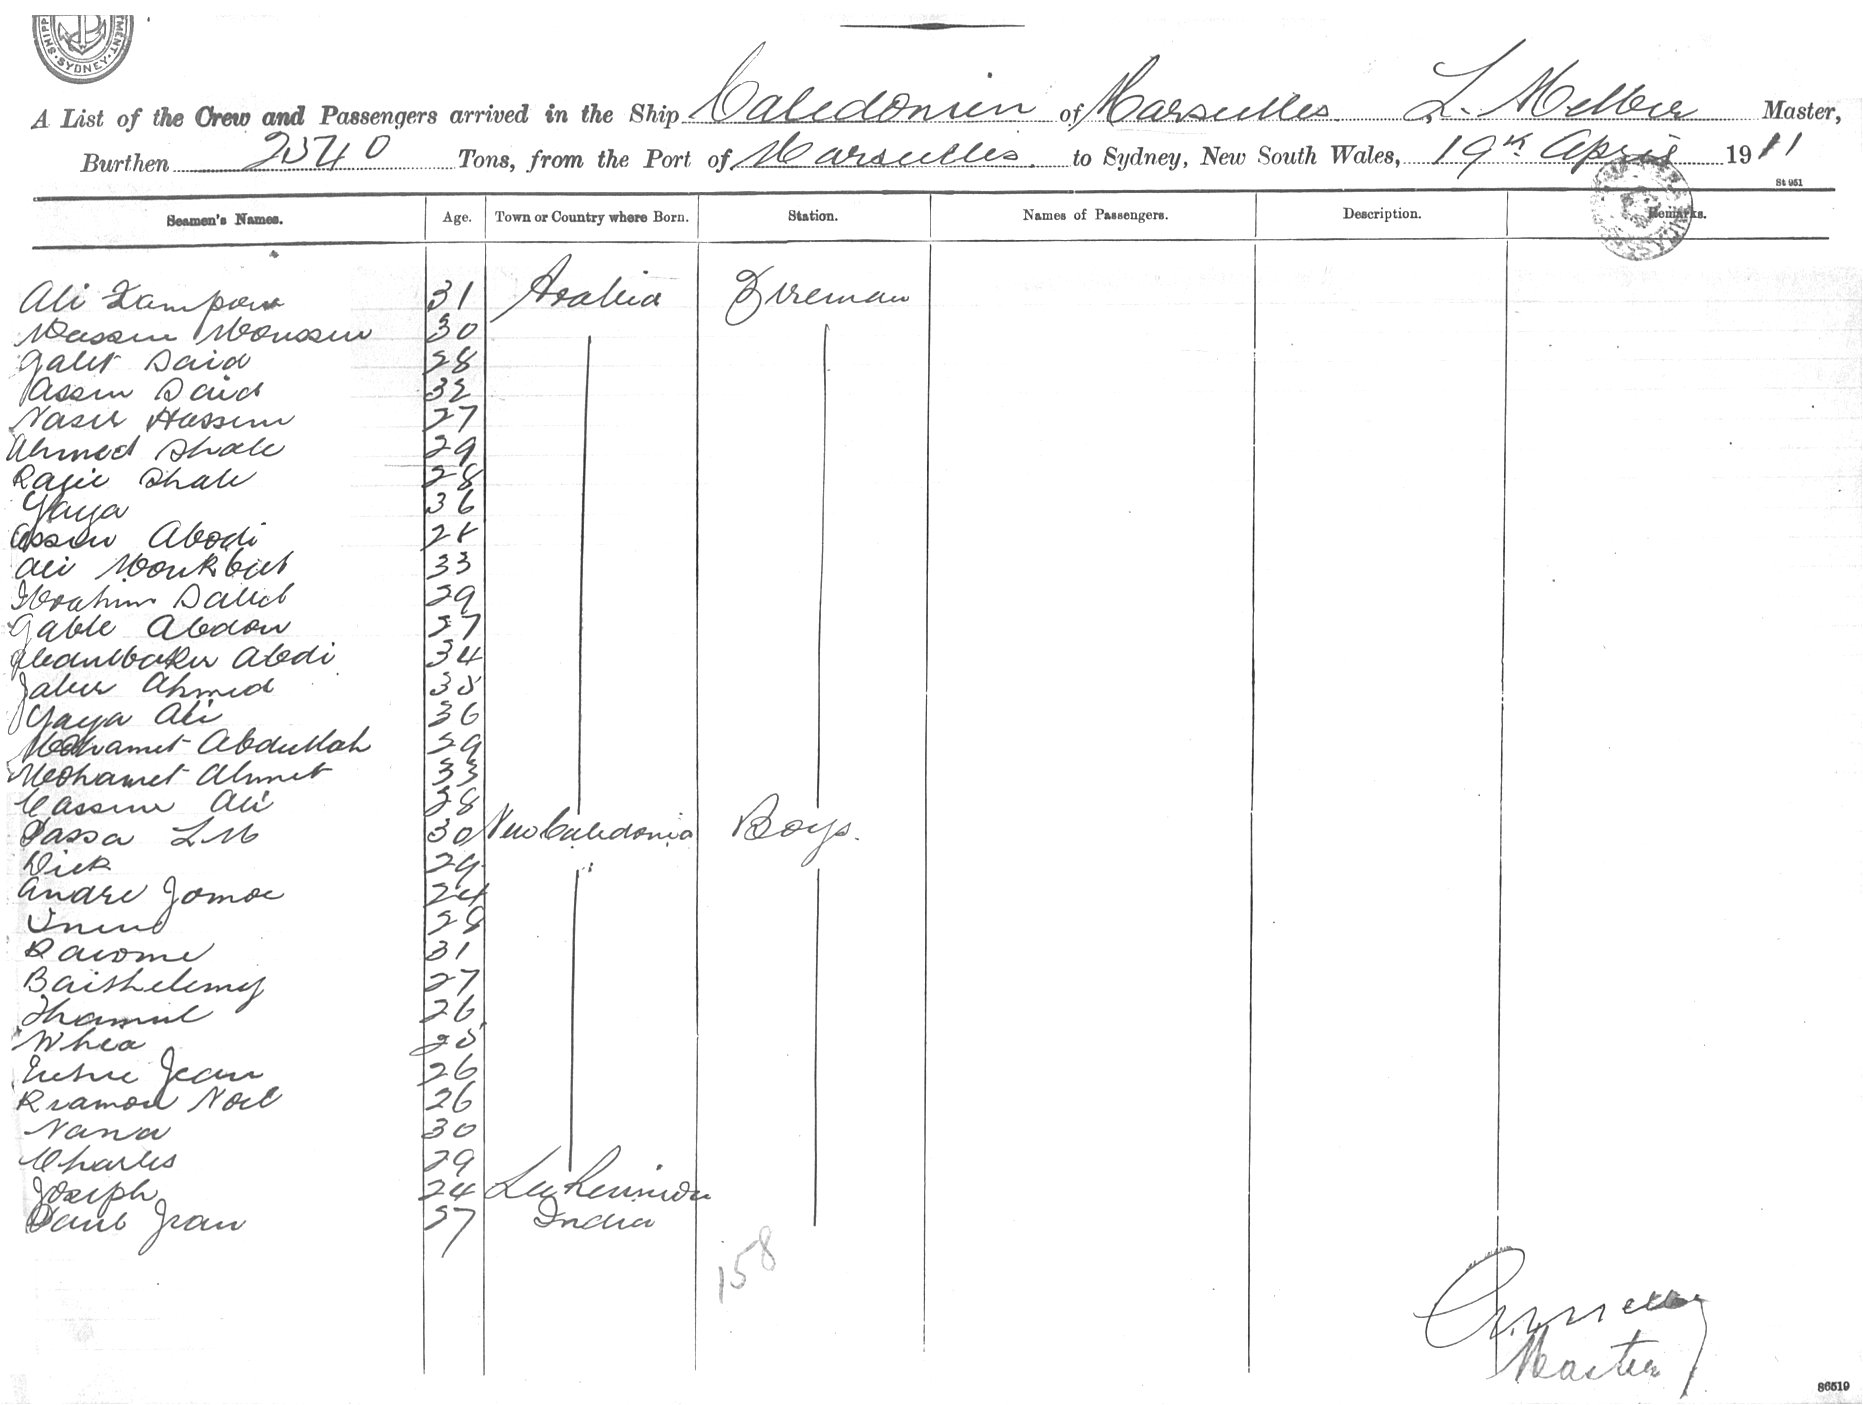 SHIPP MENT · SYDNEY ·
A List of the Crew and Passengers arrived in the Ship Caledonien of Marseilles L. Master,
Burthen 2540 Tons, from the Port of Marseilles to Sydney, New South Wales, 19th April 1911
St 951
Seamen's Names. Age. Town or Country where Born. Station. Names of Passengers. Description. Remarks.
Ali 31 Arabia Fireman
Moussin 30
Galet Said 28
Assen Said 32
Naser Hassem 27
Ahmed Shale 29
Shale 28
Yaya 36
Assen Abodi 28
Ali 33
Ibrahim Saled 29
Gable Abdou 27
Abdulbaker Abdi 34
Jaber Ahmed 35
Yaya Ali 36
Mohamet Abdullah 29
Mohamet Ahmet 33
Cassim Ali 28
30 New Caledonia Boys.
Dick 29
Andre 24
28
31
Baithelemy 27
26
Whea 25
Jean 26
Noel 26
Nana 30
Charles 29
Joseph 24 La Reunion
Paul Jean 27 India
158
Master
86519